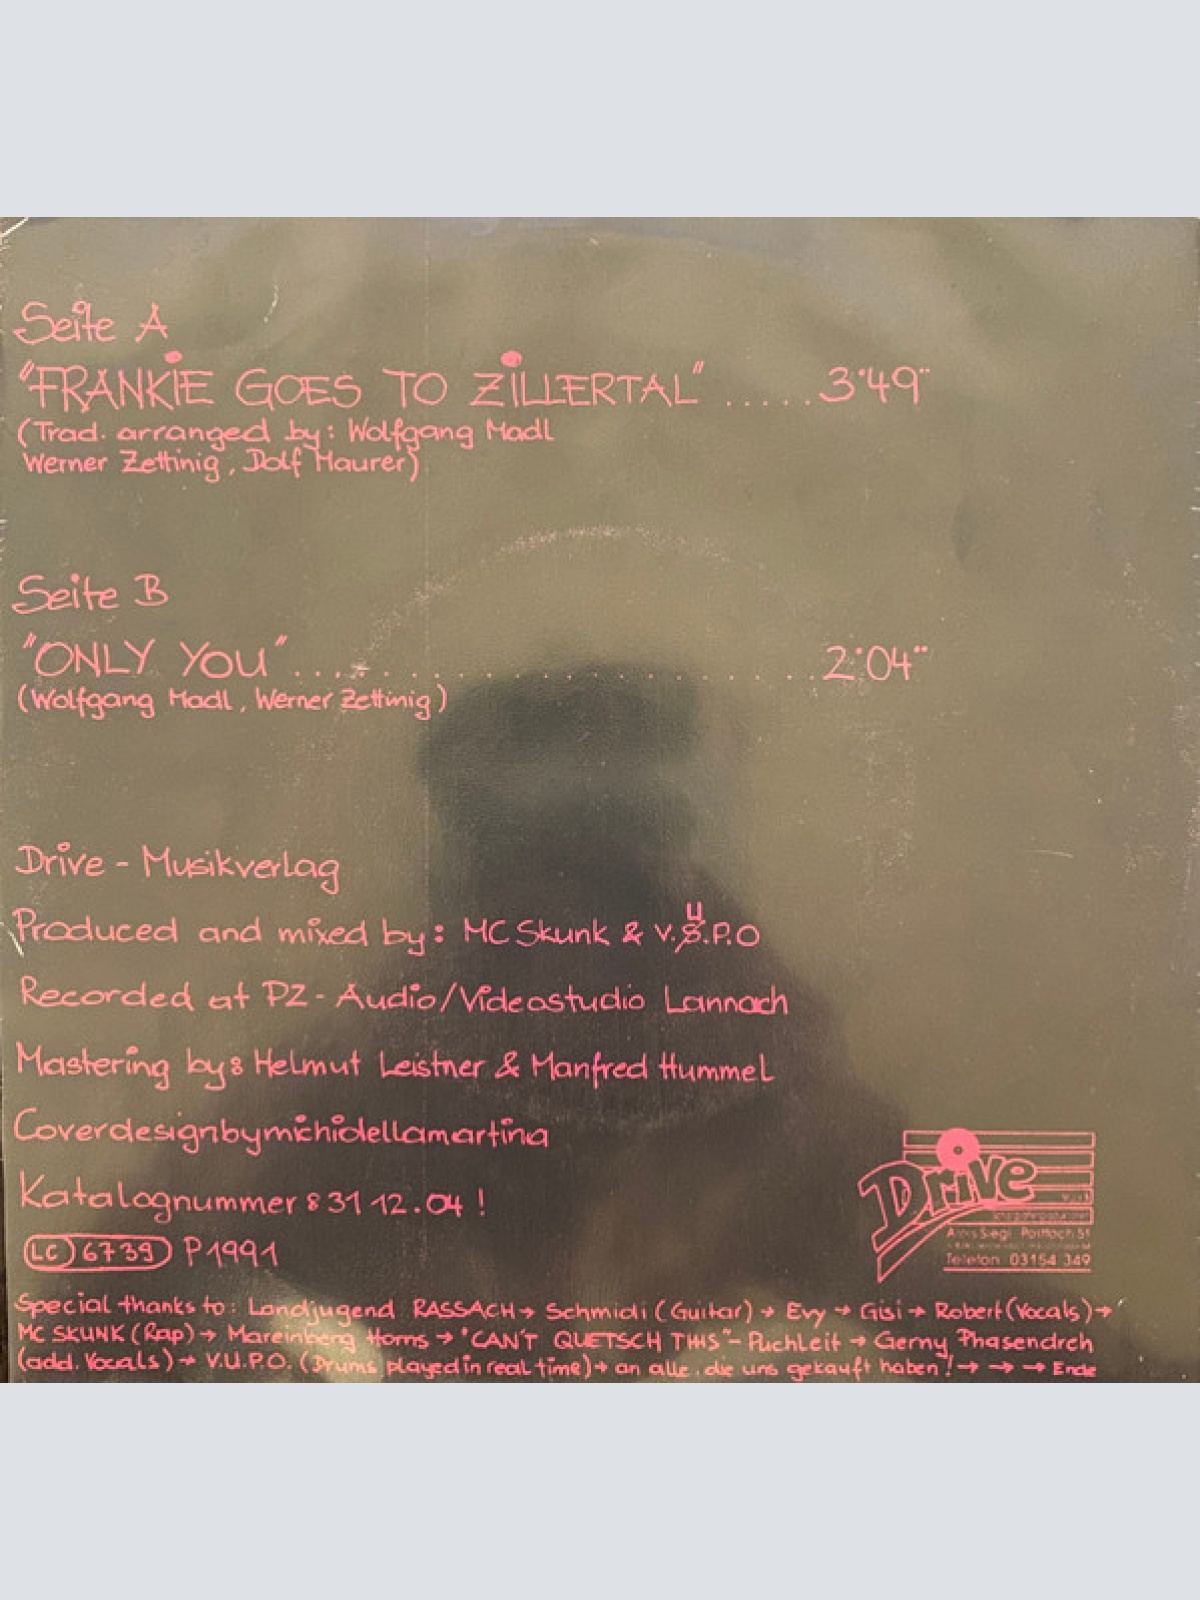 Seite A
"FRANKIE GOES TO ZILLERTAL" ..... 3'49"
(Trad. arranged by: Wolfgang Madl
Werner Zettinig, Dolf Maurer)
Seite B
"ONLY YOU" .................... 2'04"
(Wolfgang Madl, Werner Zettinig)
Drive - Musikverlag
Produced and mixed by: MC Skunk & V.U.P.O
Recorded at PZ - Audio/Videostudio Lannach
Mastering by: Helmut Leistner & Manfred Hummel
Coverdesignbymichidellamartina
Katalognummer: 31 12.04!
LC 6739 P1991
Drive
Postfach 51
Telefon 03154 349
Special thanks to: Landjugend RASSACH→ Schmidi (Guitar) → Evy → Gisi → Robert (Vocals)→
MC SKUNK (Rap)→ Mareinberg Horns → "CAN'T QUETSCH THIS"- Puchleit → Gerny Phasendreh
(add. Vocals)→ V.U.P.O. (Drums played in real time)→ an alle, die uns gekauft haben!→ → → Ende